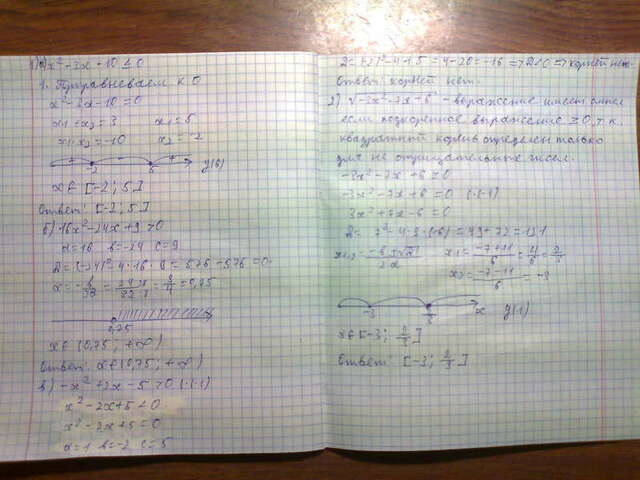 1) а) x² - 3x - 10 < 0
1. Приравниваем к 0
x² - 3x - 10 = 0
x₁ + x₂ = 3 x₁ = 5
x₁ · x₂ = -10 x₂ = -2
+ - +
-2 5
x ∈ [-2; 5]
Ответ: [-2; 5]
б) 16x² - 24x + 9 > 0
a = 16 b = -24 c = 9
D = (-24)² - 4 · 16 · 9 = 576 - 576 = 0
0,75
x ∈ (0,75; +∞)
Ответ: x ∈ (0,75; +∞)
в) -x² + 2x - 5 > 0 (·(-1)
x² - 2x + 5 < 0
x² - 2x + 5 = 0
a = 1 b = -2 c = 5
= 4 - 20 = -16 => D < 0 => корней нет.
Ответ: корней нет.
2) √-3x² - 7x + 6 - выражение имеет смысл
если подкоренное выражение ≥ 0, т.к.
квадратный корень определен только
для не отрицательных чисел.
-3x² - 7x + 6 ≥ 0
-3x² - 7x + 6 = 0 (·(-1)
3x² + 7x - 6 = 0
D = 7² - 4 · 3 · (-6) = 49 + 72 = 121
x₁,₂ = (-b ± √D)/2a x₁ = (-7 + 11)/6 = 4/6 = 2/3
x₂ = (-7 - 11)/6 = -3
-3 2/3 x
x ∈ [-3; 2/3]
Ответ: [-3; 2/3]